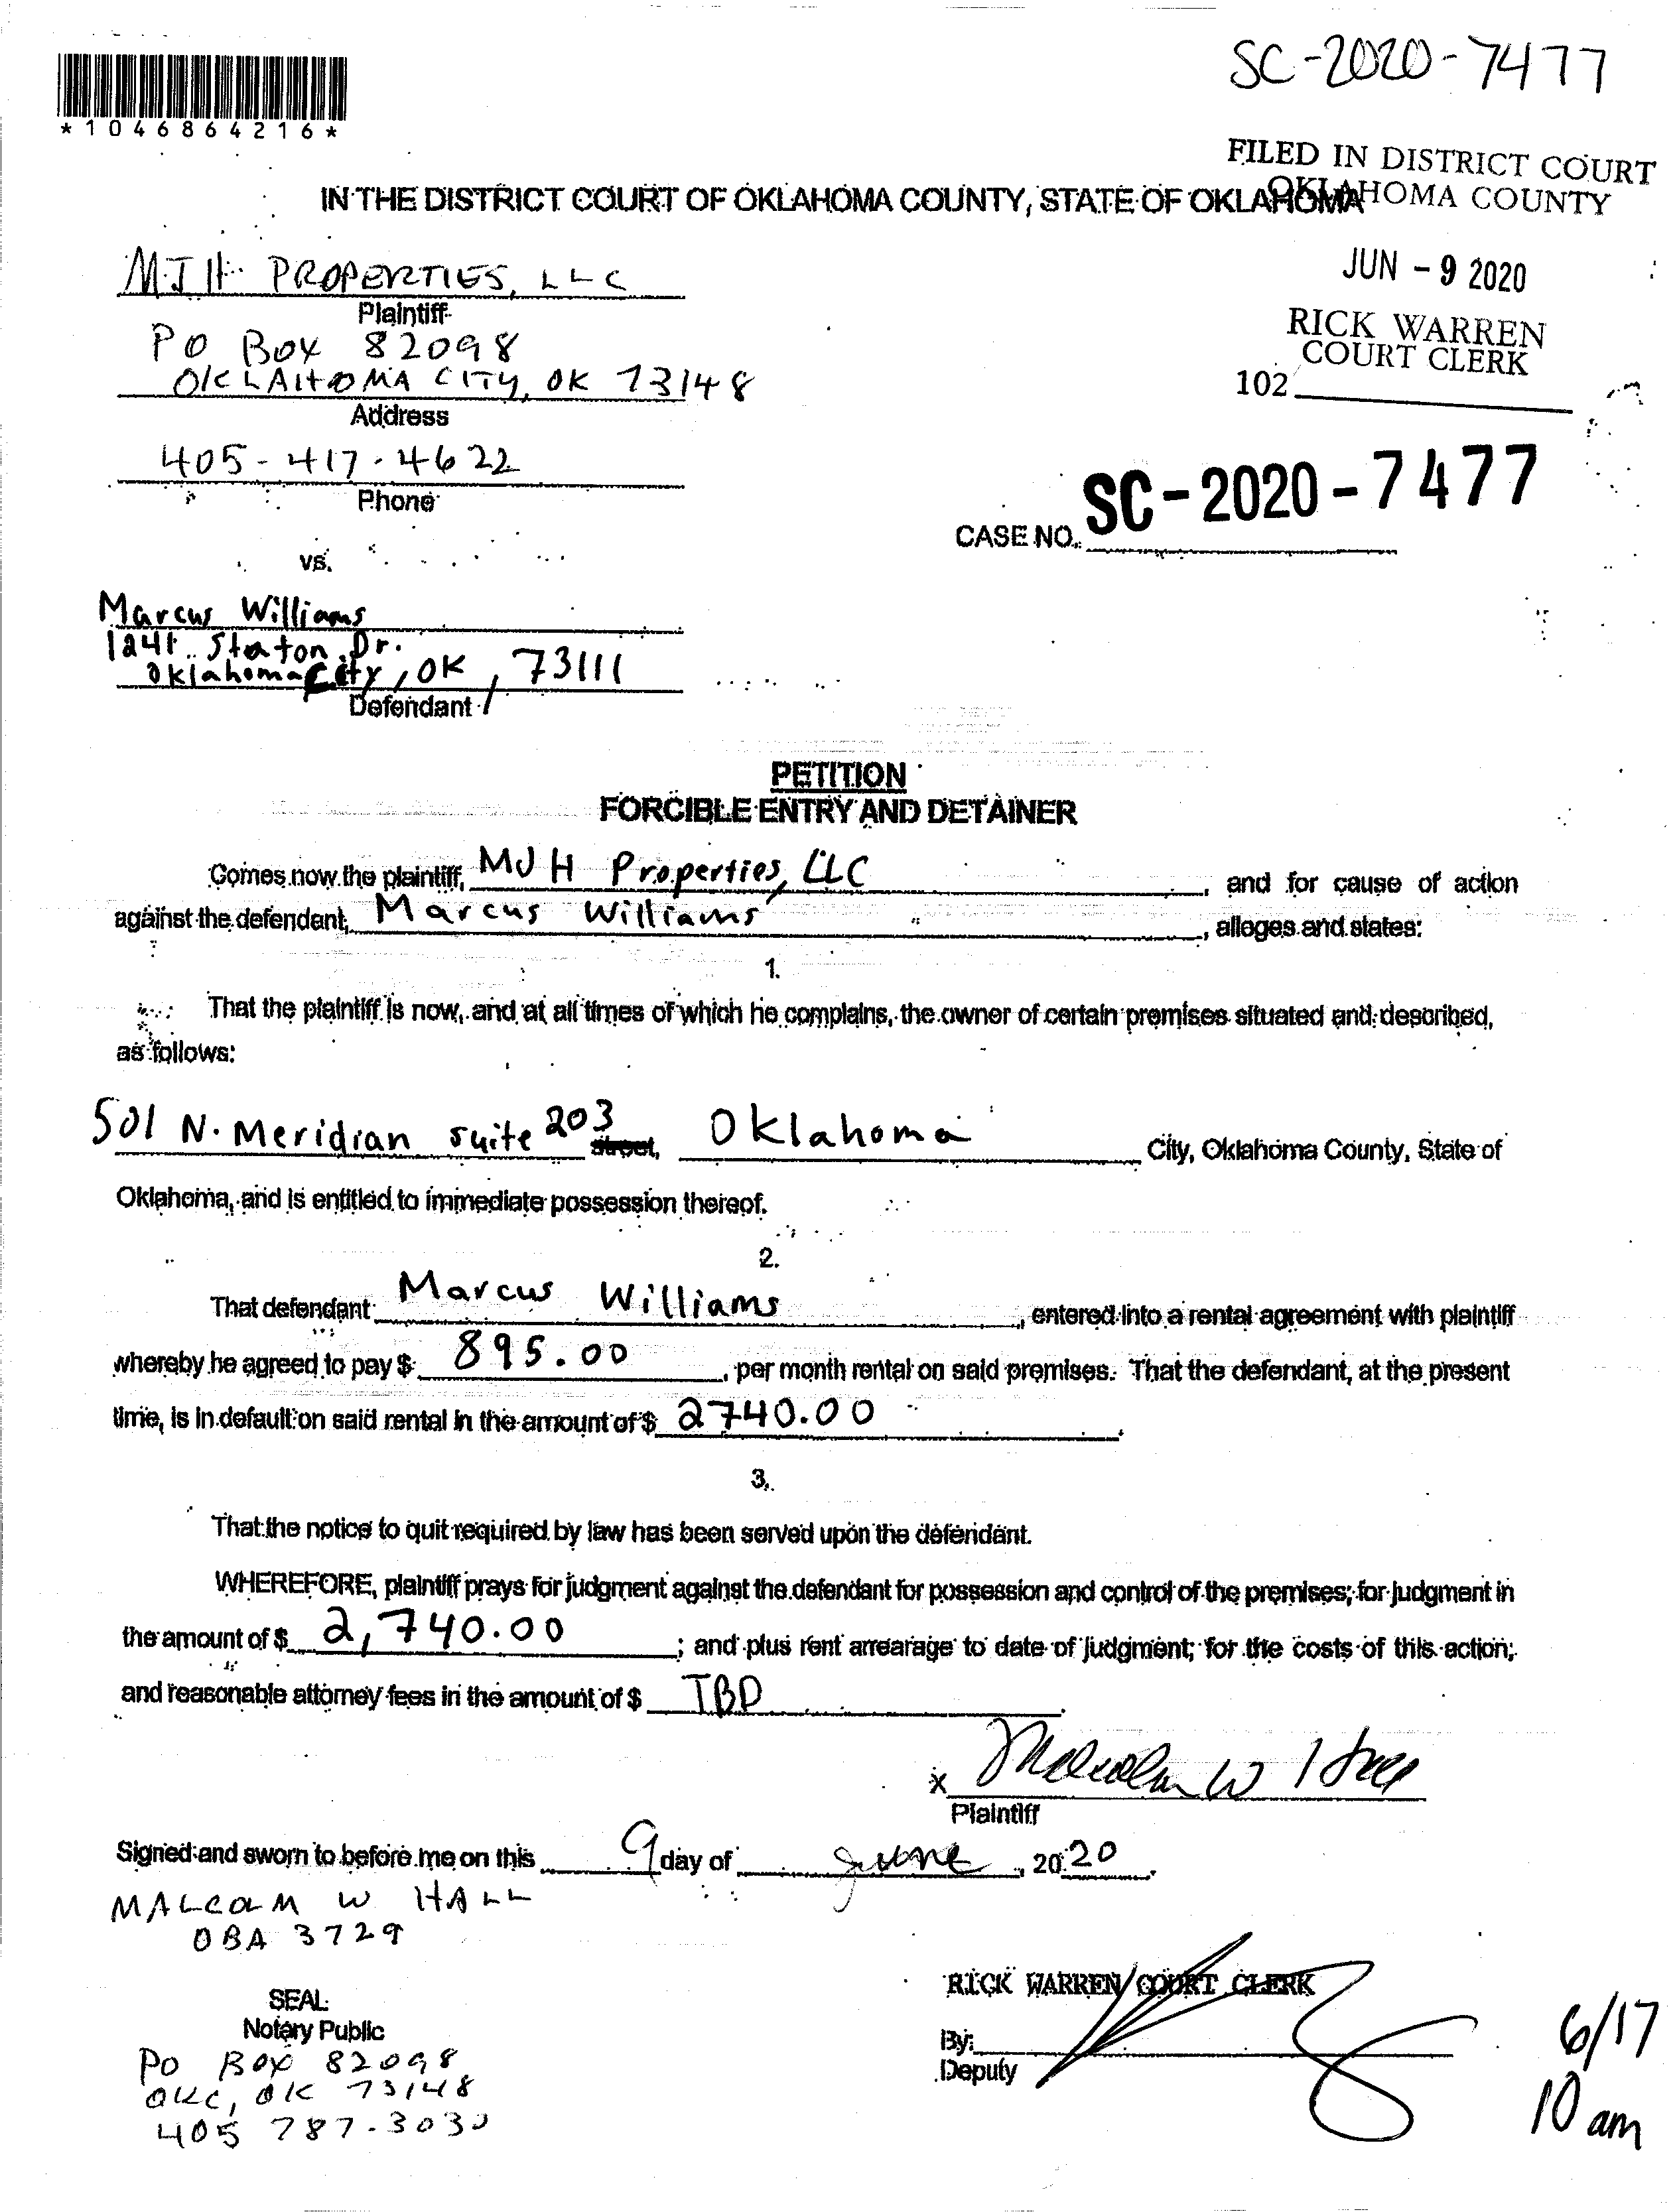 SC-2020-7477
*1046864216*
FILED IN DISTRICT COURT
OKLAHOMA COUNTY
IN THE DISTRICT COURT OF OKLAHOMA COUNTY, STATE OF OKLAHOMA
JUN - 9 2020
RICK WARREN
COURT CLERK
102
MJH PROPERTIES, LLC
Plaintiff
PO Box 82098
OKLAHOMA CITY, OK 73148
Address
405-417-4622
Phone
CASE NO. SC-2020-7477
vs.
Marcus Williams
1241 Staton Dr.
Oklahoma City, OK, 73111
Defendant
PETITION
FORCIBLE ENTRY AND DETAINER
Comes now the plaintiff, MJH Properties, LLC, and for cause of action
against the defendant, Marcus Williams, alleges and states:
1.
That the plaintiff is now, and at all times of which he complains, the owner of certain premises situated and described,
as follows:
501 N. Meridian suite 203 street, Oklahoma City, Oklahoma County, State of
Oklahoma, and is entitled to immediate possession thereof.
2.
That defendant Marcus Williams, entered into a rental agreement with plaintiff
whereby he agreed to pay $ 895.00, per month rental on said premises. That the defendant, at the present
time, is in default on said rental in the amount of $ 2740.00.
3.
That the notice to quit required by law has been served upon the defendant.
WHEREFORE, plaintiff prays for judgment against the defendant for possession and control of the premises; for judgment in
the amount of $ 2,740.00; and plus rent arrearage to date of judgment; for the costs of this action;
and reasonable attorney fees in the amount of $ TBD.
x Malcolm W Hall
Plaintiff
Signed and sworn to before me on this 9 day of June, 2020.
MALCOLM W HALL
OBA 3729
RICK WARREN/COURT CLERK
SEAL
Notary Public
By:
Deputy
PO Box 82098
OKC, OK 73148
405 787-3030
6/17
10 am